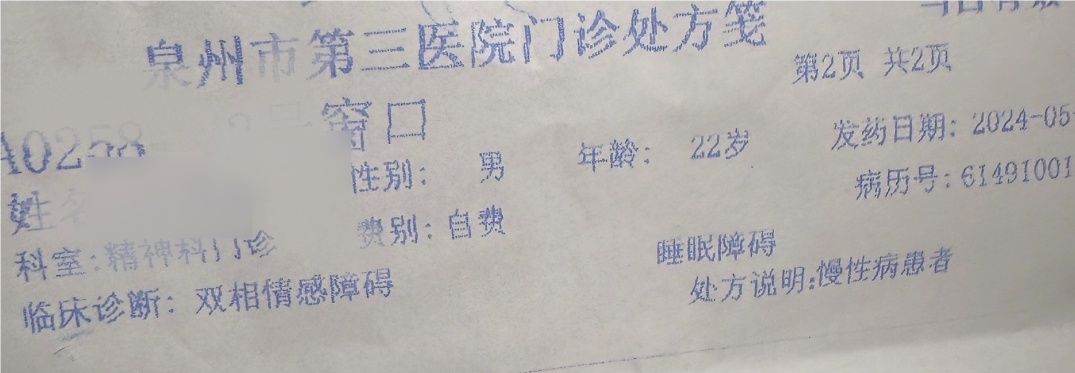 泉州市第三医院门诊处方笺
第2页 共2页
窗口
性别: 男 年龄: 22岁 发药日期: 2024-05-
姓 病历号: 61491001
科室: 精神科门诊 费别: 自费
临床诊断: 双相情感障碍 睡眠障碍
处方说明: 慢性病患者